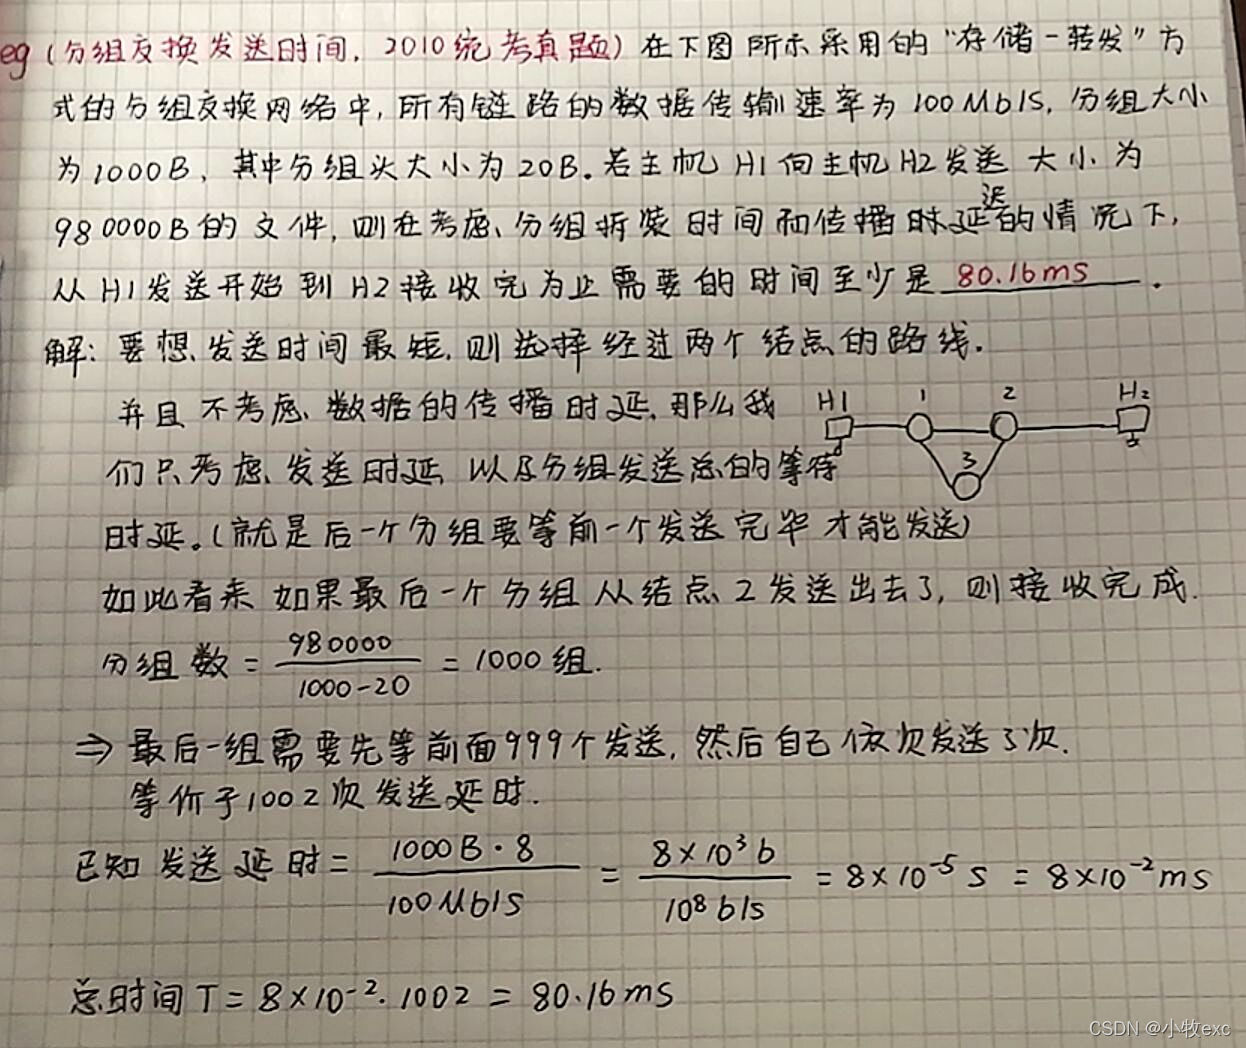 eg(分组交换发送时间, 2010统考真题)在下图所示采用的“存储-转发”方
式的分组交换网络中,所有链路的数据传输速率为100Mb/s,分组大小
为1000B,其中分组头大小为20B。若主机H1向主机H2发送 大小为
980000B的文件,则在考虑、分组拆装时间和传播时延迟的情况下,
从H1发送开始到H2接收完为止需要的时间至少是 80.16ms .
解: 要想发送时间最短,则选择经过两个结点的路线.
并且不考虑数据的传播时延,那么我
们只考虑发送时延以及分组发送总的等待
时延。(就是后一个分组要等前一个发送完毕才能发送)
H1 1 2 H2
3
如此看来如果最后一个分组从结点2发送出去了,则接收完成.
分组数 = 980000 / 1000-20 = 1000组.
⇒ 最后一组需要先等前面999个发送,然后自己依次发送3次.
等价于1002次发送延时.
已知发送延时 = 1000B·8 / 100Mb/s = 8×10³b / 10⁸b/s = 8×10⁻⁵s = 8×10⁻²ms
总时间T = 8×10⁻²·1002 = 80.16ms
CSDN @小牧exc